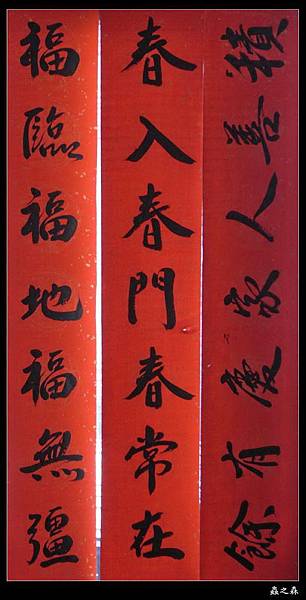 積善人家慶有餘
春入春門春常在
福臨福地福無疆
蟲之森